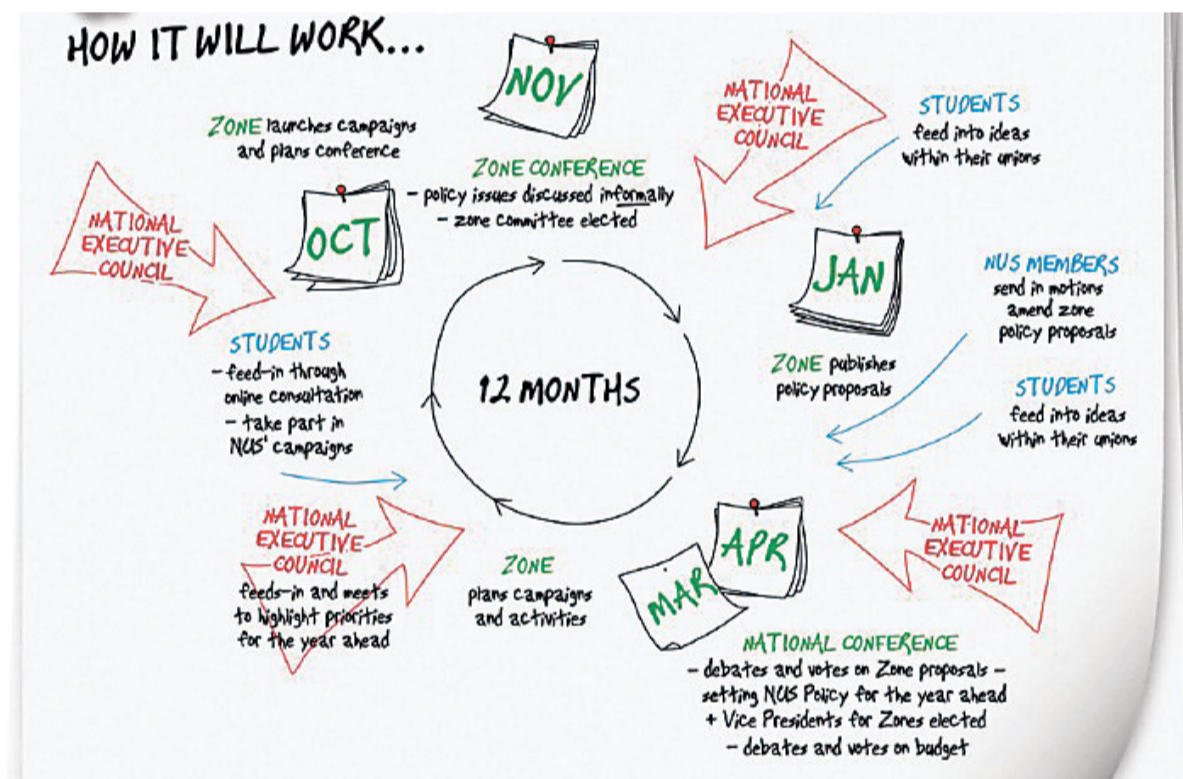 HOW IT WILL WORK...
NOV
ZONE launches campaigns
and plans conference
OCT
ZONE CONFERENCE
- policy issues discussed informally
- zone committee elected
NATIONAL
EXECUTIVE
COUNCIL
STUDENTS
feed into ideas
within their unions
NATIONAL
EXECUTIVE
COUNCIL
JAN
ZONE publishes
policy proposals
NUS MEMBERS
send in motions
amend zone
policy proposals
STUDENTS
feed into ideas
within their unions
STUDENTS
- feed-in through
online consultation
- take part in
NUS' campaigns
12 MONTHS
NATIONAL
EXECUTIVE
COUNCIL
feeds-in and meets
to highlight priorities
for the year ahead
ZONE
plans campaigns
and activities
MAR
APR
NATIONAL
EXECUTIVE
COUNCIL
NATIONAL CONFERENCE
- debates and votes on Zone proposals -
setting NUS Policy for the year ahead
+ Vice Presidents for Zones elected
- debates and votes on budget